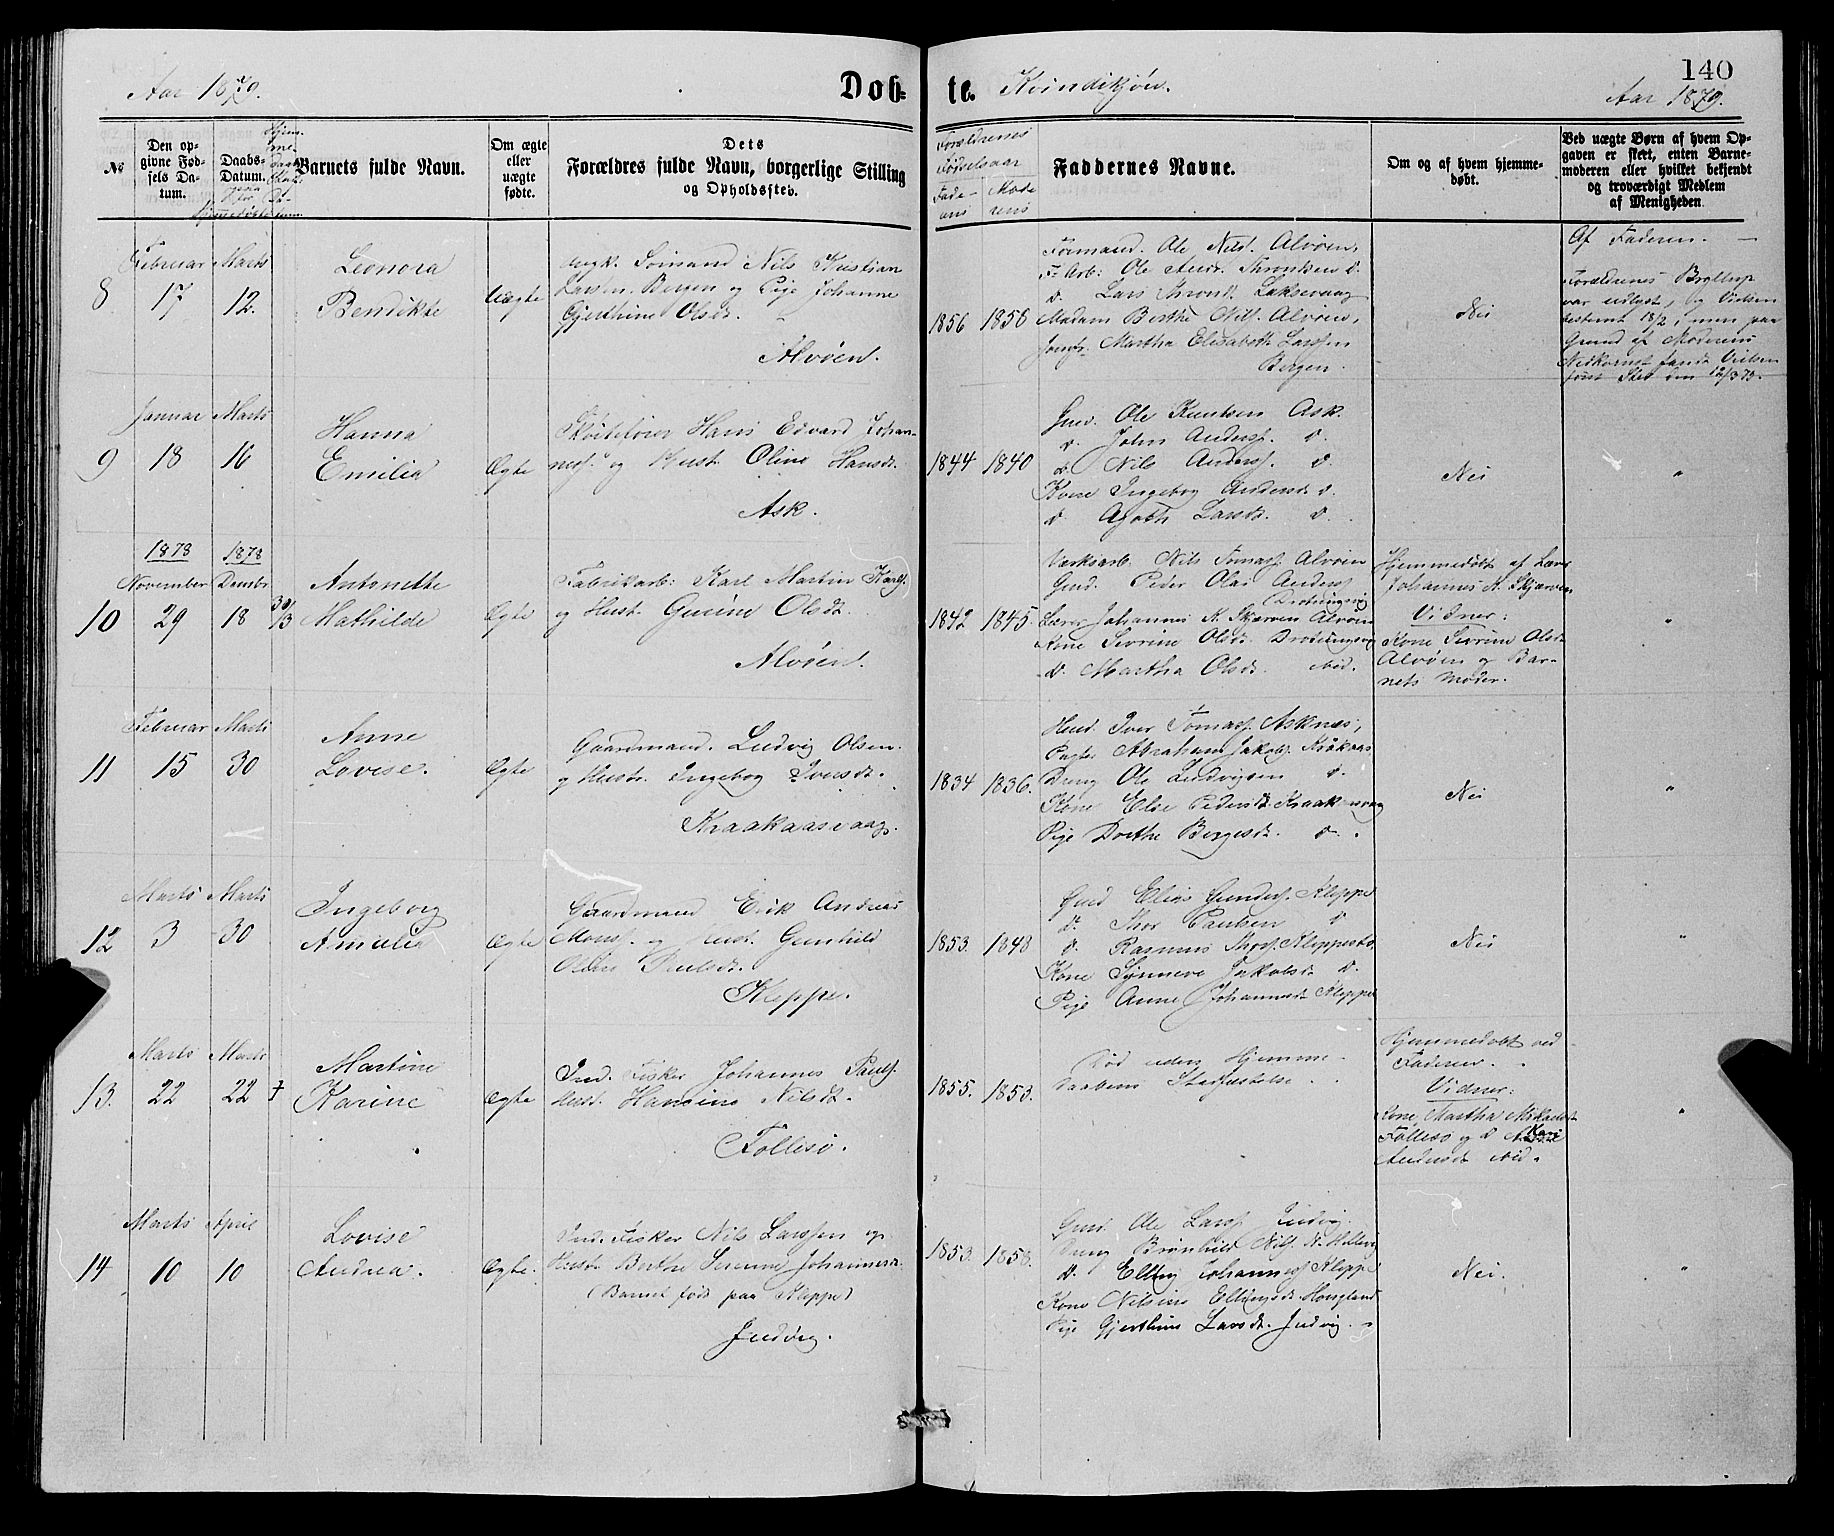 140
Aar 1879.
Døb-
te.
Kvindekjøn.
Aar 1879.
No
Den op-
givne Fød-
sels Da-
tum.
Daabs-
Datum.
Barnets fulde Navn.
Om ægte
eller
uægte
fødte.
Dets
Forældres fulde Navn, borgerlige Stilling
og Opholdssted.
Forældrenes
Fødselsaar
Fade-
rens
Mode
rens
Faddernes Navne.
Om og af hvem hjemme-
døbt.
Ved uægte Børn af hvem Op-
gaven er skeet, enten Barne-
moderen eller hvilket bekjendt
og troværdigt Medlem
af Menigheden.
8
Februar
17
Marts
12.
Leonora
Bendikte
Uægte
Sømand Nils Kristian
Larsen Bergen og Pige Johanne
Gjerthine Olsdt.
Alvøen.
1856 1856
Formand. Ole Nils. Alvøen,
F. Arb: Ole Andr. Thronsen d.
d. Lars Thronds. Laksevaag
Madam Berthe Nils. Alvøen,
Jomfr. Martha Elisabeth Larssen
Bergen.
Nei
Af Faderen. —
Forældrenes Bryllup
var udlyst, og Vielsen
bestemt 18/2, men paa
Grund af Moderens
Nedkomst fandt Vielsen
først Sted den 12/3 79.
9
Januar
18
Marts
16
Hanna
Emilia
Ægte
Skøitefører Hans Edvard Johan-
ness. og Hust. Oline Hansdt.
Ask.
1844 1840
Gmd. Ole Knutsen Ask.
d. John Anders. d.
d. Nils Anders. d.
Kone Ingebog Andersdt d.
d. Agoth Larsdt. d.
Nei
"
10
1878
November
29
1878
Decmbr
18
30/3
Antonette
Mathilde
Ægte
Fabrikarb: Karl Martin Karls.
og Hust. Gurine Olsdt.
Alvøen.
1842 1845
Værksarb. Nils Tomas. Alvøen
Gmd. Peder Olai Anders.
Drotningvig
Lærer Johannes M. Skjærven Alvøen
Kone Severine Olsdt. Drotningvig
d. Martha Olsdt. ibid.
Hjemmedøbt af Lærer
Johannes M. Skjærven
Vidner:
Kone Severine Olsdt
Alvøen og Bar-
nets Moder.
"
11
Februar
15
Marts
30
Anne
Lovise.
Ægte
Gaardmand. Ludvig Olsen.
og Hustr. Ingebog Iversdt.
Kraakaasvaag.
1834 1836.
Husd. Iver Tomas. Asknæs,
Pagter Abraham Jakobs. Kråkaas
Dreng Ole Ludvigsen d.
Kone Elie Pedersdt. Kraakaasvaag
Pige Dorthe Borgesdt. d.
Nei
"
12
Marts
3
Marts
30
Ingeborg
Amalia
Ægte
Gaardmand Erik Andreas
Mons. og Hust. Gunhild
Oline Paulsdt.
Kleppe.
1853. 1848
Gmd Elias Gunders. Kleppe
d. Thor Paulsen d
d. Rasmus Thors. Kleppestø.
Kone Synneve Jakobsdt. d.
Pige Anne Johannesdt Kleppe
Nei
"
13.
Marts
22
Marts
22 †
Martine
Karine
Ægte
Ind. Fisker Johannes Pauls.
Hust. Hansine Nilsdt.
Follesø.
1855. 1853.
Død uden Hjemme-
daabens Stadfæstelse.
Hjemmedøbt ved
Faderen.
Vidner:
Kone Martha Mikaelsdt
Follesø og d. Kari
Andersdt ibid.
"
14
Marts
10
April
10
Lovise
Andrea.
Ægte.
Ind. Fisker Nils Larssen og
Hust. Berthe Serine Johannesdt.
(Barnet født paa Kleppe)
Judvig.
1853. 1858.
Gmd. Ole Lars. Judvig.
Dreng Brønhild Nils.
d. Elling Johannes. Kleppe
Kone Nilsine Ellingsdt. Hougland
Pige Gjerthine Larsdt. Judvig.
Nei.
"